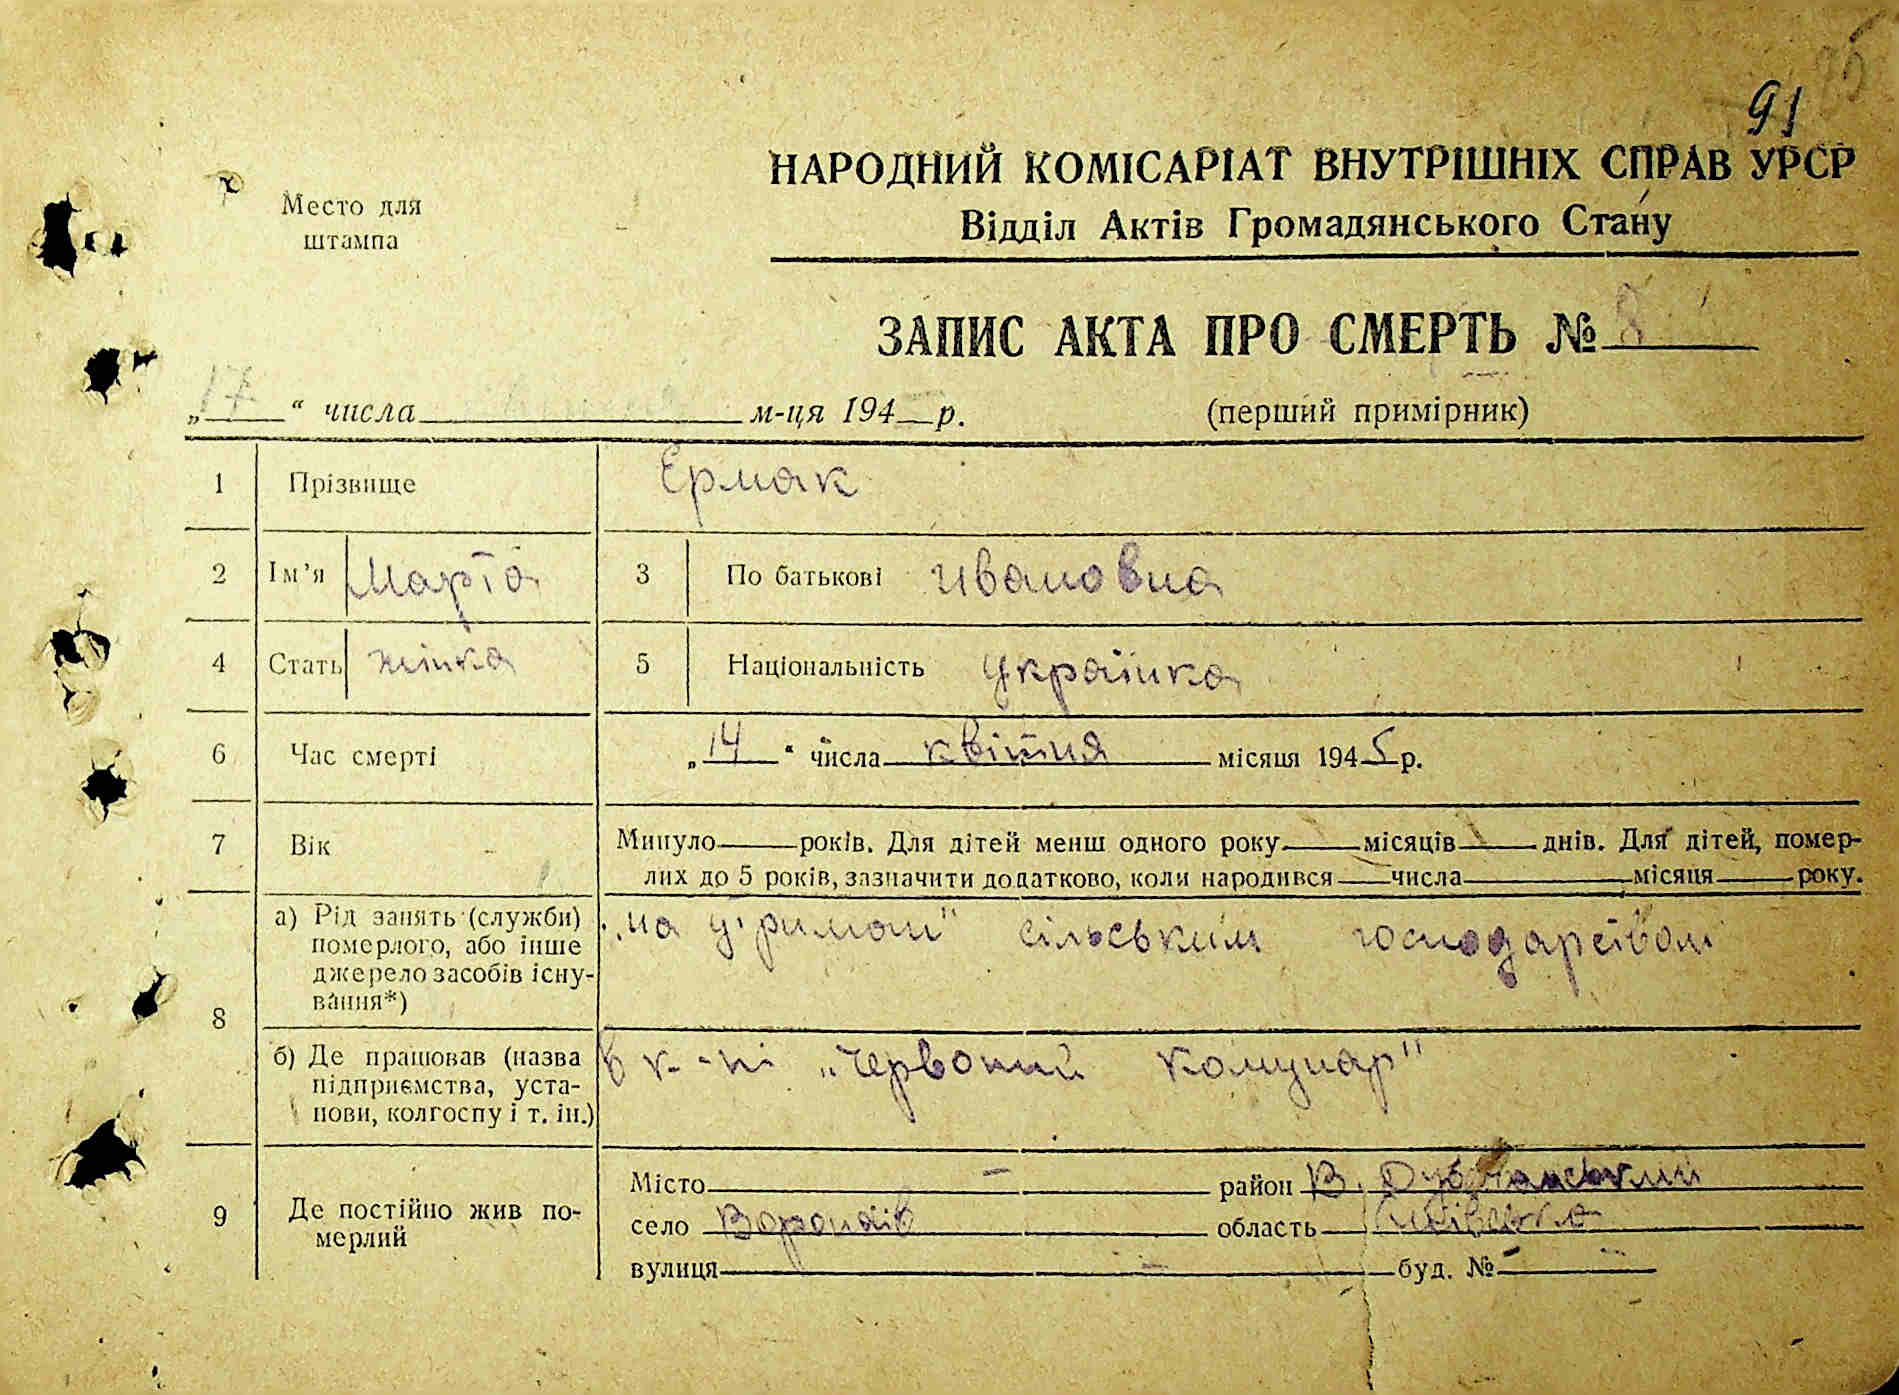 91
НАРОДНИЙ КОМІСАРІАТ ВНУТРІШНІХ СПРАВ УРСР
Место для
штампа
Відділ Актів Громадянського Стану
ЗАПИС АКТА ПРО СМЕРТЬ № 8
„ 17 “ числа м-ця 194 р. (перший примірник)
1 Прізвище Ермак
2 Ім’я Марта 3 По батькові Ивановна
4 Стать жінка 5 Національність українка
6 Час смерті „ 14 “ числа квітня місяця 1945 р.
7 Вік Минуло років. Для дітей менш одного року місяців днів. Для дітей, помер-
лих до 5 років, зазначити додатково, коли народився числа місяця року.
8 а) Рід занять (службн)
померлого, або інше
джерело засобів існу-
вання*)
„на утриман" сільським господарством
б) Де працював (назва
підприємства, уста-
нови, колгоспу і т. ін.)
в к-пі „Червоний комунар"
9 Де постійно жив по-
мерлий
Місто — район В. Дубечанський
село Воропаїв область Київська
вулиця — буд. № —